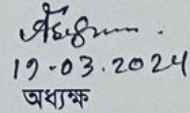 19.03.2024
অধ্যক্ষ